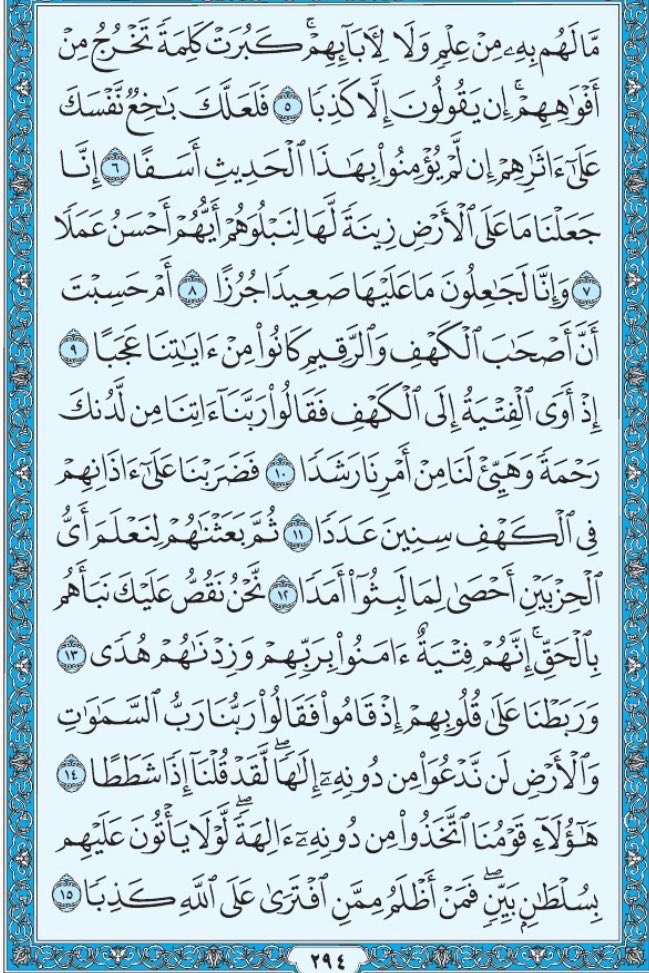 مَّا لَهُم بِهِۦ مِنْ عِلْمٍ وَلَا لِأٓبَآئِهِمْۚ كَبُرَتْ كَلِمَةً تَخْرُجُ مِنْ
أَفْوَٰهِهِمْۚ إِن يَقُولُونَ إِلَّا كَذِبًا ٥ فَلَعَلَّكَ بَٰخِعٌ نَّفْسَكَ
عَلَىٰٓ ءَاثَٰرِهِمْ إِن لَّمْ يُؤْمِنُوا۟ بِهَٰذَا ٱلْحَدِيثِ أَسَفًا ٦ إِنَّا
جَعَلْنَا مَا عَلَى ٱلْأَرْضِ زِينَةً لَّهَا لِنَبْلُوَهُمْ أَيُّهُمْ أَحْسَنُ عَمَلًا
٧ وَإِنَّا لَجَٰعِلُونَ مَا عَلَيْهَا صَعِيدًا جُرُزًا ٨ أَمْ حَسِبْتَ
أَنَّ أَصْحَٰبَ ٱلْكَهْفِ وَٱلرَّقِيمِ كَانُوا۟ مِنْ ءَايَٰتِنَا عَجَبًا ٩
إِذْ أَوَى ٱلْفِتْيَةُ إِلَى ٱلْكَهْفِ فَقَالُوا۟ رَبَّنَآ ءَاتِنَا مِن لَّدُنكَ
رَحْمَةً وَهَيِّئْ لَنَا مِنْ أَمْرِنَا رَشَدًا ١٠ فَضَرَبْنَا عَلَىٰٓ ءَاذَانِهِمْ
فِى ٱلْكَهْفِ سِنِينَ عَدَدًا ١١ ثُمَّ بَعَثْنَٰهُمْ لِنَعْلَمَ أَىُّ
ٱلْحِزْبَيْنِ أَحْصَىٰ لِمَا لَبِثُوٓا۟ أَمَدًا ١٢ نَّحْنُ نَقُصُّ عَلَيْكَ نَبَأَهُم
بِٱلْحَقِّۚ إِنَّهُمْ فِتْيَةٌ ءَامَنُوا۟ بِرَبِّهِمْ وَزِدْنَٰهُمْ هُدًى ١٣
وَرَبَطْنَا عَلَىٰ قُلُوبِهِمْ إِذْ قَامُوا۟ فَقَالُوا۟ رَبُّنَا رَبُّ ٱلسَّمَٰوَٰتِ
وَٱلْأَرْضِ لَن نَّدْعُوَا۟ مِن دُونِهِۦٓ إِلَٰهًاۖ لَّقَدْ قُلْنَآ إِذًا شَطَطًا ١٤
هَٰٓؤُلَآءِ قَوْمُنَا ٱتَّخَذُوا۟ مِن دُونِهِۦٓ ءَالِهَةًۖ لَّوْلَا يَأْتُونَ عَلَيْهِم
بِسُلْطَٰنٍۭ بَيِّنٍۖ فَمَنْ أَظْلَمُ مِمَّنِ ٱفْتَرَىٰ عَلَى ٱللَّهِ كَذِبًا ١٥
٢٩٤